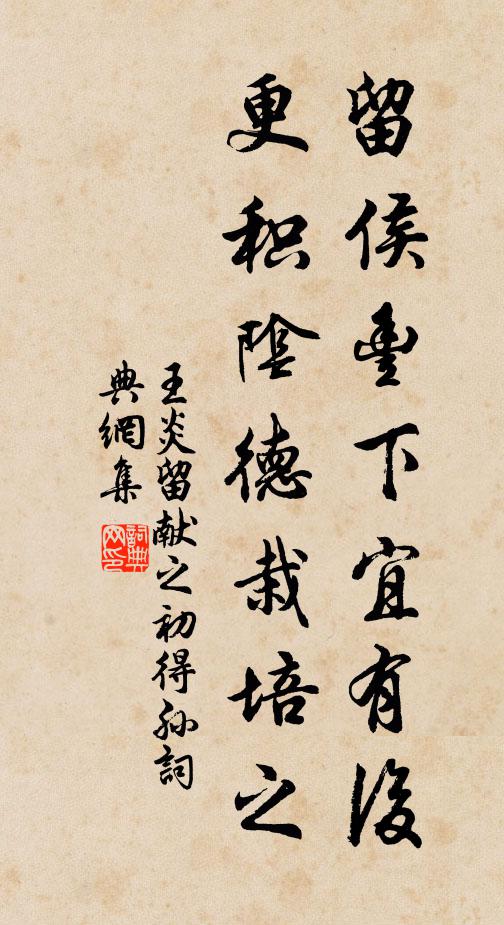 留侯豊下宜有後
更积陰德栽培之
王炎留献之初得孙詞
典網集
詞典网印